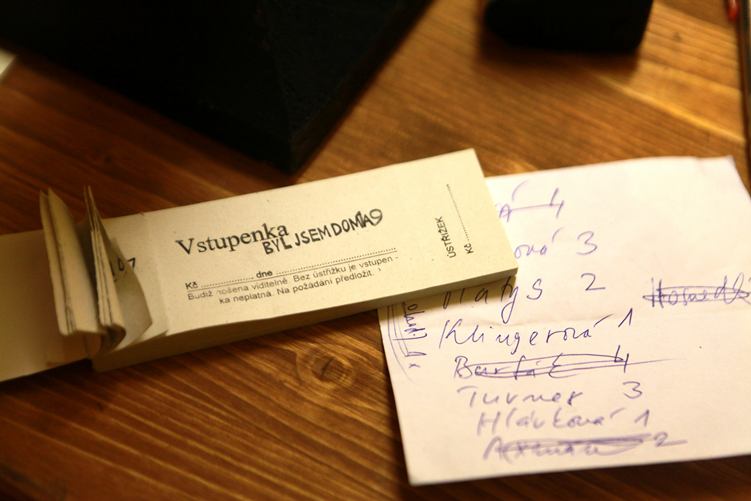 Vstupenka
BYL JSEM DOMA 9
Kč ............. dne ...............................
Budiž nošena viditelně. Bez ústřižku je vstupen-
ka neplatná. Na požádání předložit.
ÚSTŘIŽEK
Kč ..........
á 4
ová 3
2
Klingerová 1
4
Turner 3
Hlávková 1
2